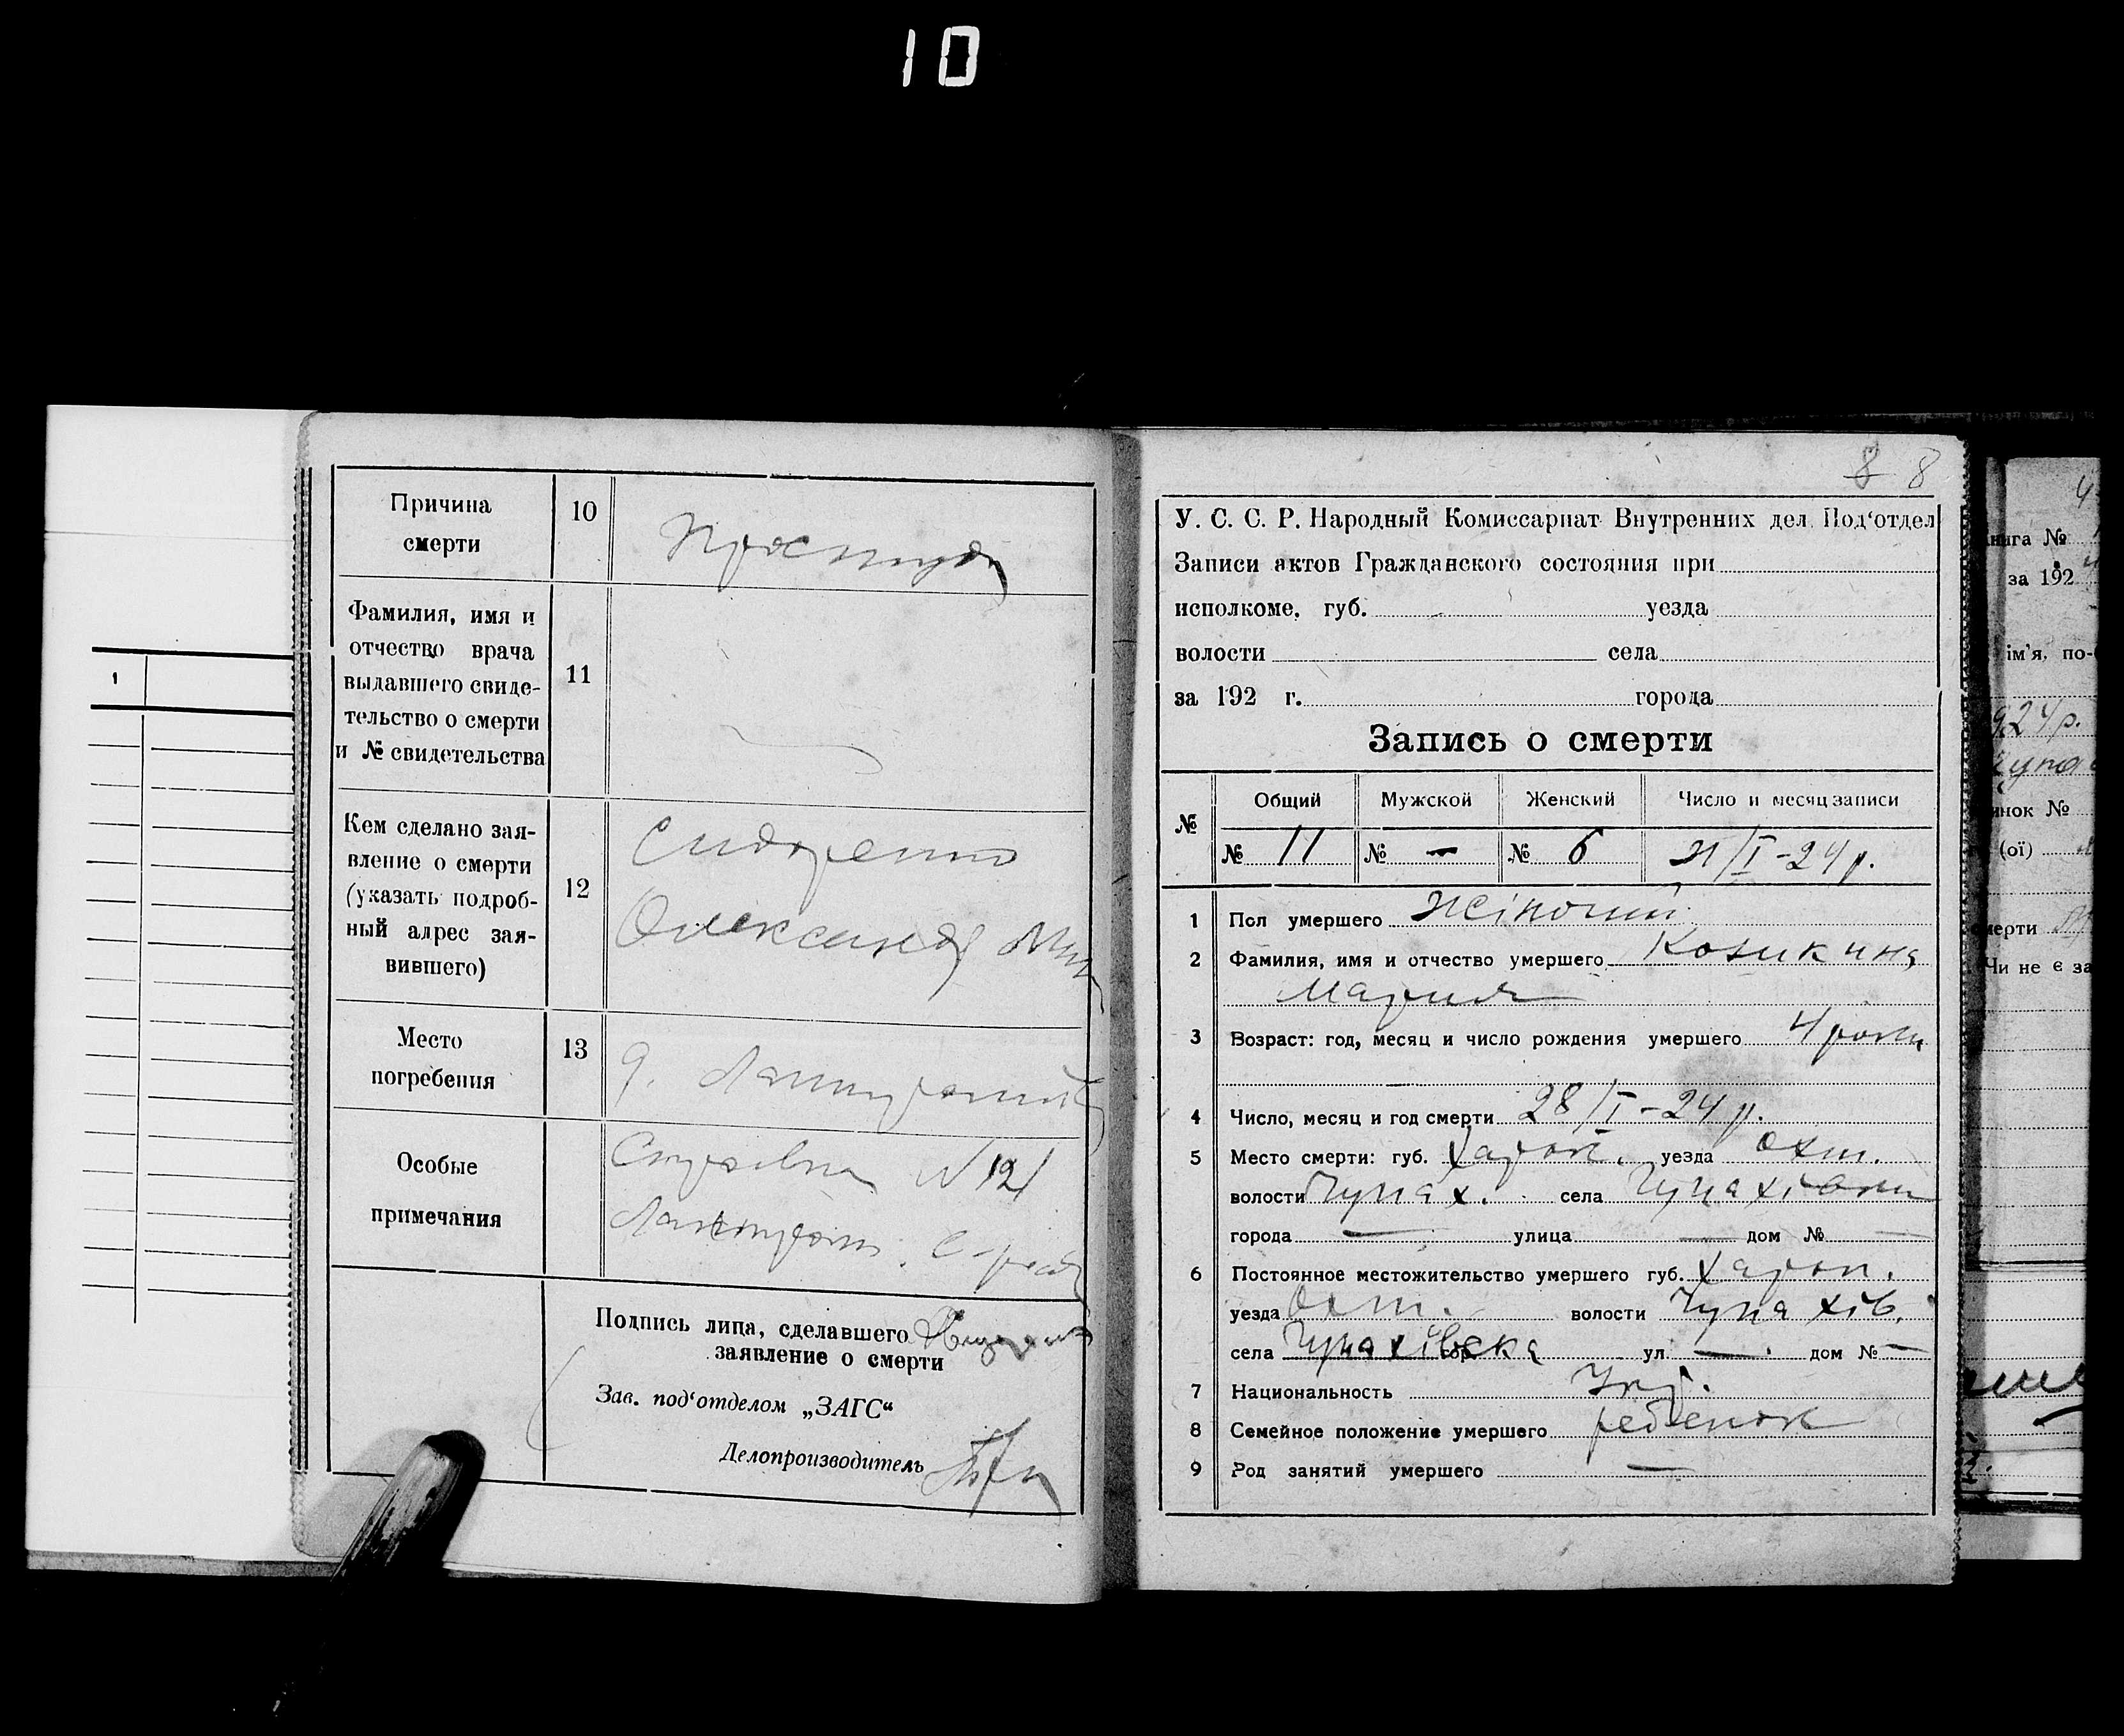 10
Причина
смерти
10
Простуда
Фамилия, имя и
отчество врача
выдавшего свиде-
тельство о смерти
и № свидетельства
11
Кем сделано зая-
вление о смерти
(указать подроб-
ный адрес зая-
вившего)
12
Сидоренко
Олександр
Место
погребения
13
Особые
примечания
Справка №121
Подпись лица, сделавшего
заявление о смерти
Зав. под'отделом „ЗАГС“
Делопроизводитель
8 8
У. С. С. Р. Народный Комиссариат Внутренних дел Под'отдел
Записи актов Гражданского состояния при
исполкоме, губ. уезда
волости села
за 192 г. города
Запись о смерти
№ Общий Мужской Женский Число и месяц записи
№ 11 № — № 6 31/I-24 р.
1 Пол умершего Жіночий
2 Фамилия, имя и отчество умершего
Мария
3 Возраст: год, месяц и число рождения умершего 4 роки
4 Число, месяц и год смерти 28/I-24 р.
5 Место смерти: губ. Харк. уезда Охт.
волости Чупах. села Чупахівки
города — улица — дом № —
6 Постоянное местожительство умершего губ. Харк.
уезда Охт. волости Чупахів.
села Чупахівка гор. ул. — дом № —
7 Национальность Укр.
8 Семейное положение умершего ребенок
9 Род занятий умершего —
1
нига №
за 192
ім'я, по-
924р.
инок №
(ої)
мерти
Чи не є за